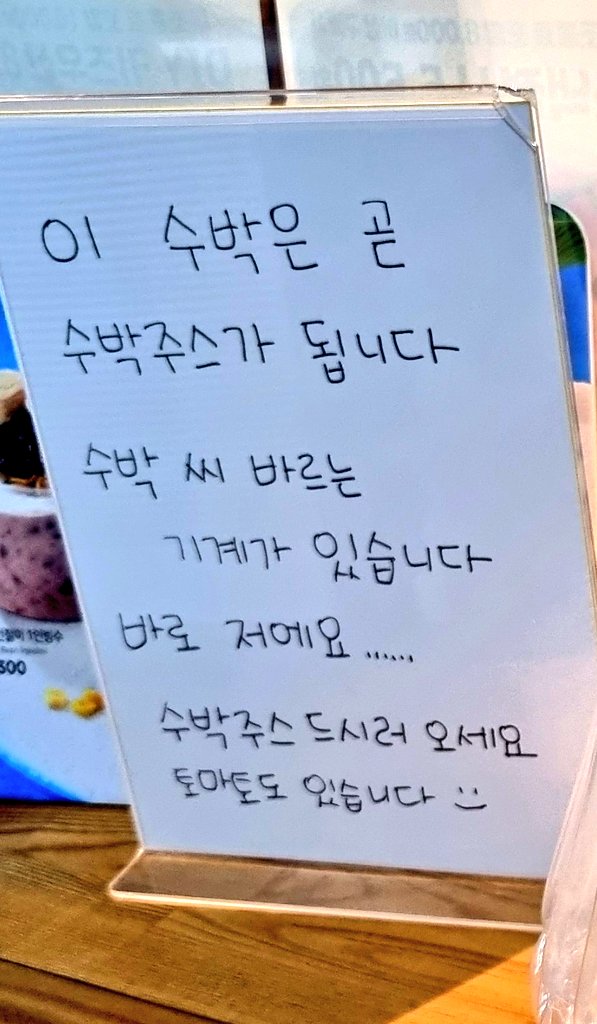 이 수박은 곧
수박주스가 됩니다
수박 씨 바르는
기계가 있습니다
바로 저에요......
수박주스 드시러 오세요
토마토도 있습니다 :)
1인빙수
300